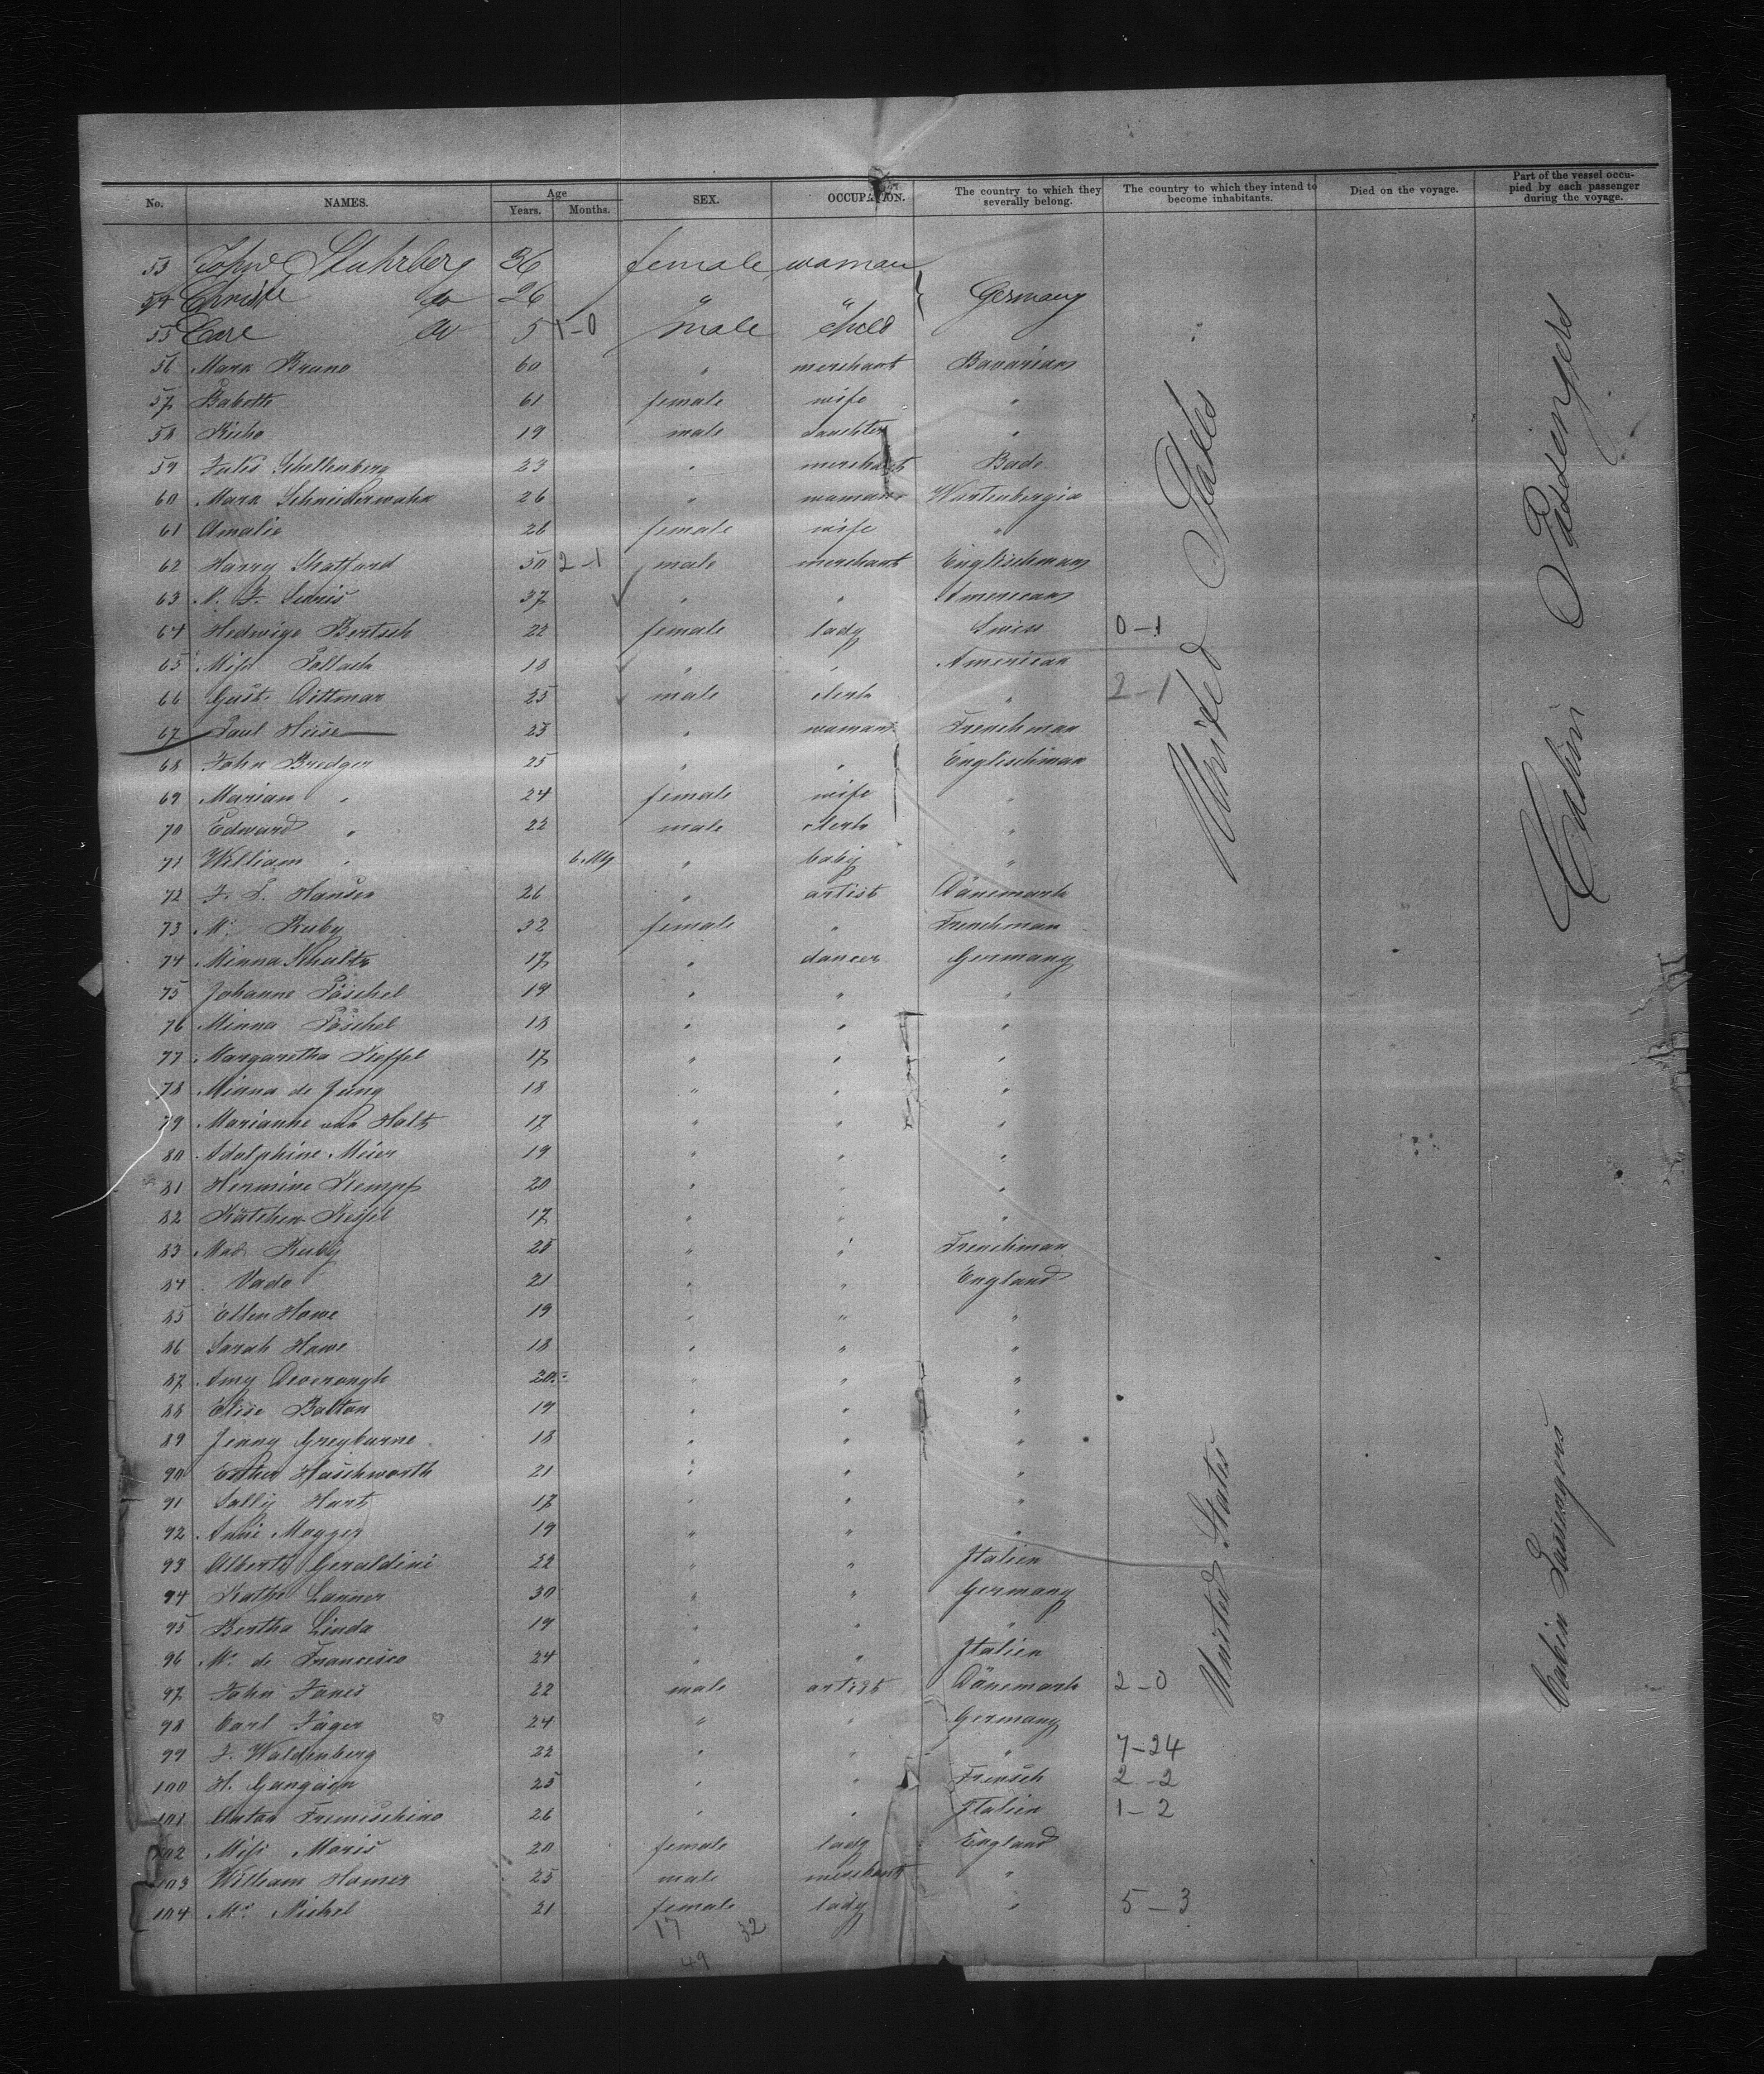 No. NAMES. Age Years. Months. SEX. OCCUPATION. The country to which they severally belong. The country to which they intend to become inhabitants. Died on the voyage. Part of the vessel occupied by each passenger during the voyage.
53 Stuhrberg 36 female woman
54 Christe do 26 " " Germany
55 Carl do 5 1-0 male child
56 Mark Bruno 60 " merchant Bavarian
57 Babette 61 female wife "
58 Richo 19 male daughter "
59 Jules Schellenberg 23 " merchant Bade
60 Mark Schneiderwahn 26 " Wurtenbergia
61 Amalie 26 female wife "
62 Harry Stafford 50 2-1 male merchant Englischman
63 37 " " American
64 Hedwige Bertsch 22 female lady Swiss 0-1
65 Miss Pollach 18 " " American
66 Gust. Dittmar 25 male clerk " 2-1
67 Paul Heise 23 " Frenchman
68 John Bredger 25 " " Englischman
69 Marian " 24 female wife "
70 Edward " 22 male clerk "
71 William " " baby "
72 Hansen 26 " artist Dänemark
73 Ruby 32 female " Frenchman
74 Minna Schultz 17 " dancer Germany
75 Johanne Pöschel 19 " " "
76 Minna Pöschel 18 " " "
77 Margaretha 17 " " "
78 Minna de Jung 18 " " "
79 Marianne van Halt 17 " " "
80 Adolphine Meier 19 " " "
81 Hermine Kempf 20 " " "
82 Kätchen 17 " " "
83 Mad. Ruby 25 " " Frenchman
84 Vado 21 " " England
85 Ellen Howe 19 " " "
86 Sarah Howe 18 " " "
87 Amy Deverongh 20 " " "
88 Elise Balton 19 " " "
89 Jenny Greyburne 18 " " "
90 Esther Haschworth 21 " " "
91 Sally Hart 17 " " "
92 Annie Mayger 19 " " "
93 Alberty Geraldini 22 " " Italien
94 Kathe Lanner 30 " " Germany
95 Bertha Linda 19 " " "
96 de Francisco 24 " " Italien
97 John Janes 22 male artist Dänemark 2-0
98 Carl Jäger 24 " " Germany
99 J. Waldenberg 22 " " " 7-24
100 H. 25 " " Frensch 2-2
101 26 " " Italien 1-2
102 Miss Moris 20 female lady England
103 William Homer 25 male merchant "
104 Michel 21 female lady " 5-3
17 32
49
United States
United States
Cabin Passengers
Cabin Passengers